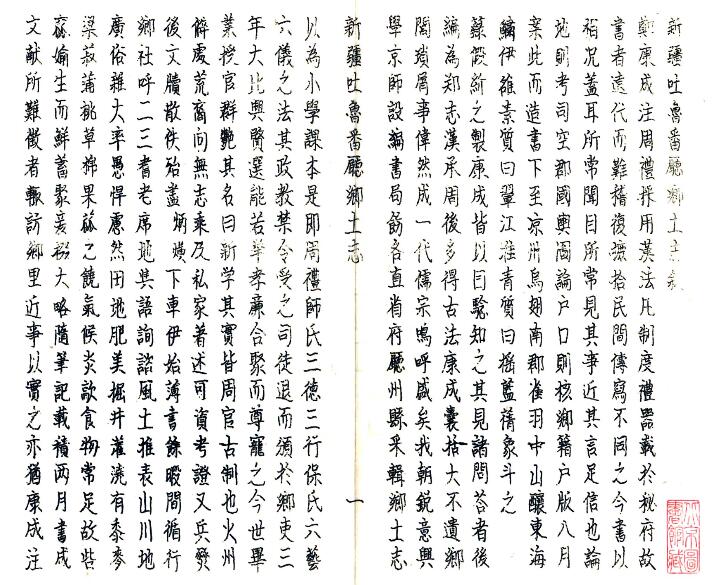 新疆吐魯番廳鄉土志叙
鄭康成注周禮採用漢法凡制度禮器載於秘府故
書者遠代而難稽復攗拾民間傳寫不同之今書以
相況蓋耳所常聞目所常見其事近其言足信也論
地則考司空郡國輿圖論戶口則核鄉籍戶版八月
案比而造書下至凉州烏翅南郡雀羽中山釀東海
鰿伊雒素質曰翬江淮青質曰揺藍蒨象斗之
假紒之製康成皆以目驗知之其見諸問荅者後
編為鄭志漢承周後多得古法康成囊括大不遺鄉
閭瑣屑事偉然成一代儒宗嗚呼盛矣我朝銳意興
學京師設編書局飭各直省府廳州縣采輯鄉土志
新疆吐魯番廳鄉土志
一
以為小學課本是即周禮師氏三德三行保氏六藝
六儀之法其政教禁令受之司徒退而頒於鄉吏三
年大比興賢選能若舉孝廉合聚而尊寵之今世畢
業授官群艷其名曰新学其實皆周官古制也火州
僻處荒裔向無志乘及私家著述可資考證又兵燹
後文牘散佚殆盡炳燡下車伊始薄書餘暇間循行
鄉社呼二三耆老席地其語詢諮風土推表山川地
廣俗雜大率愚悍慮然田地肥美掘井灌澆有黍麥
梁菽蒲桃草棉果蓏之饒氣候炎歊食物常足故呰
窳媮生而鮮蓄聚爰撮大略隨筆記載積兩月書成
文献所難徵者輙訪鄉里近事以實之亦猶康成注